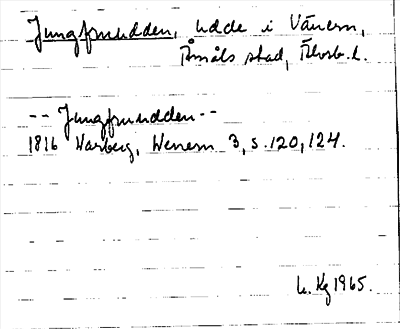 Jungfruudden, udde i Vänern,
Åmåls stad, Älvsb. l.
-- Jungfruudden --
1816 Warberg, Wenern 3, s. 120, 124.
Kg 1965.